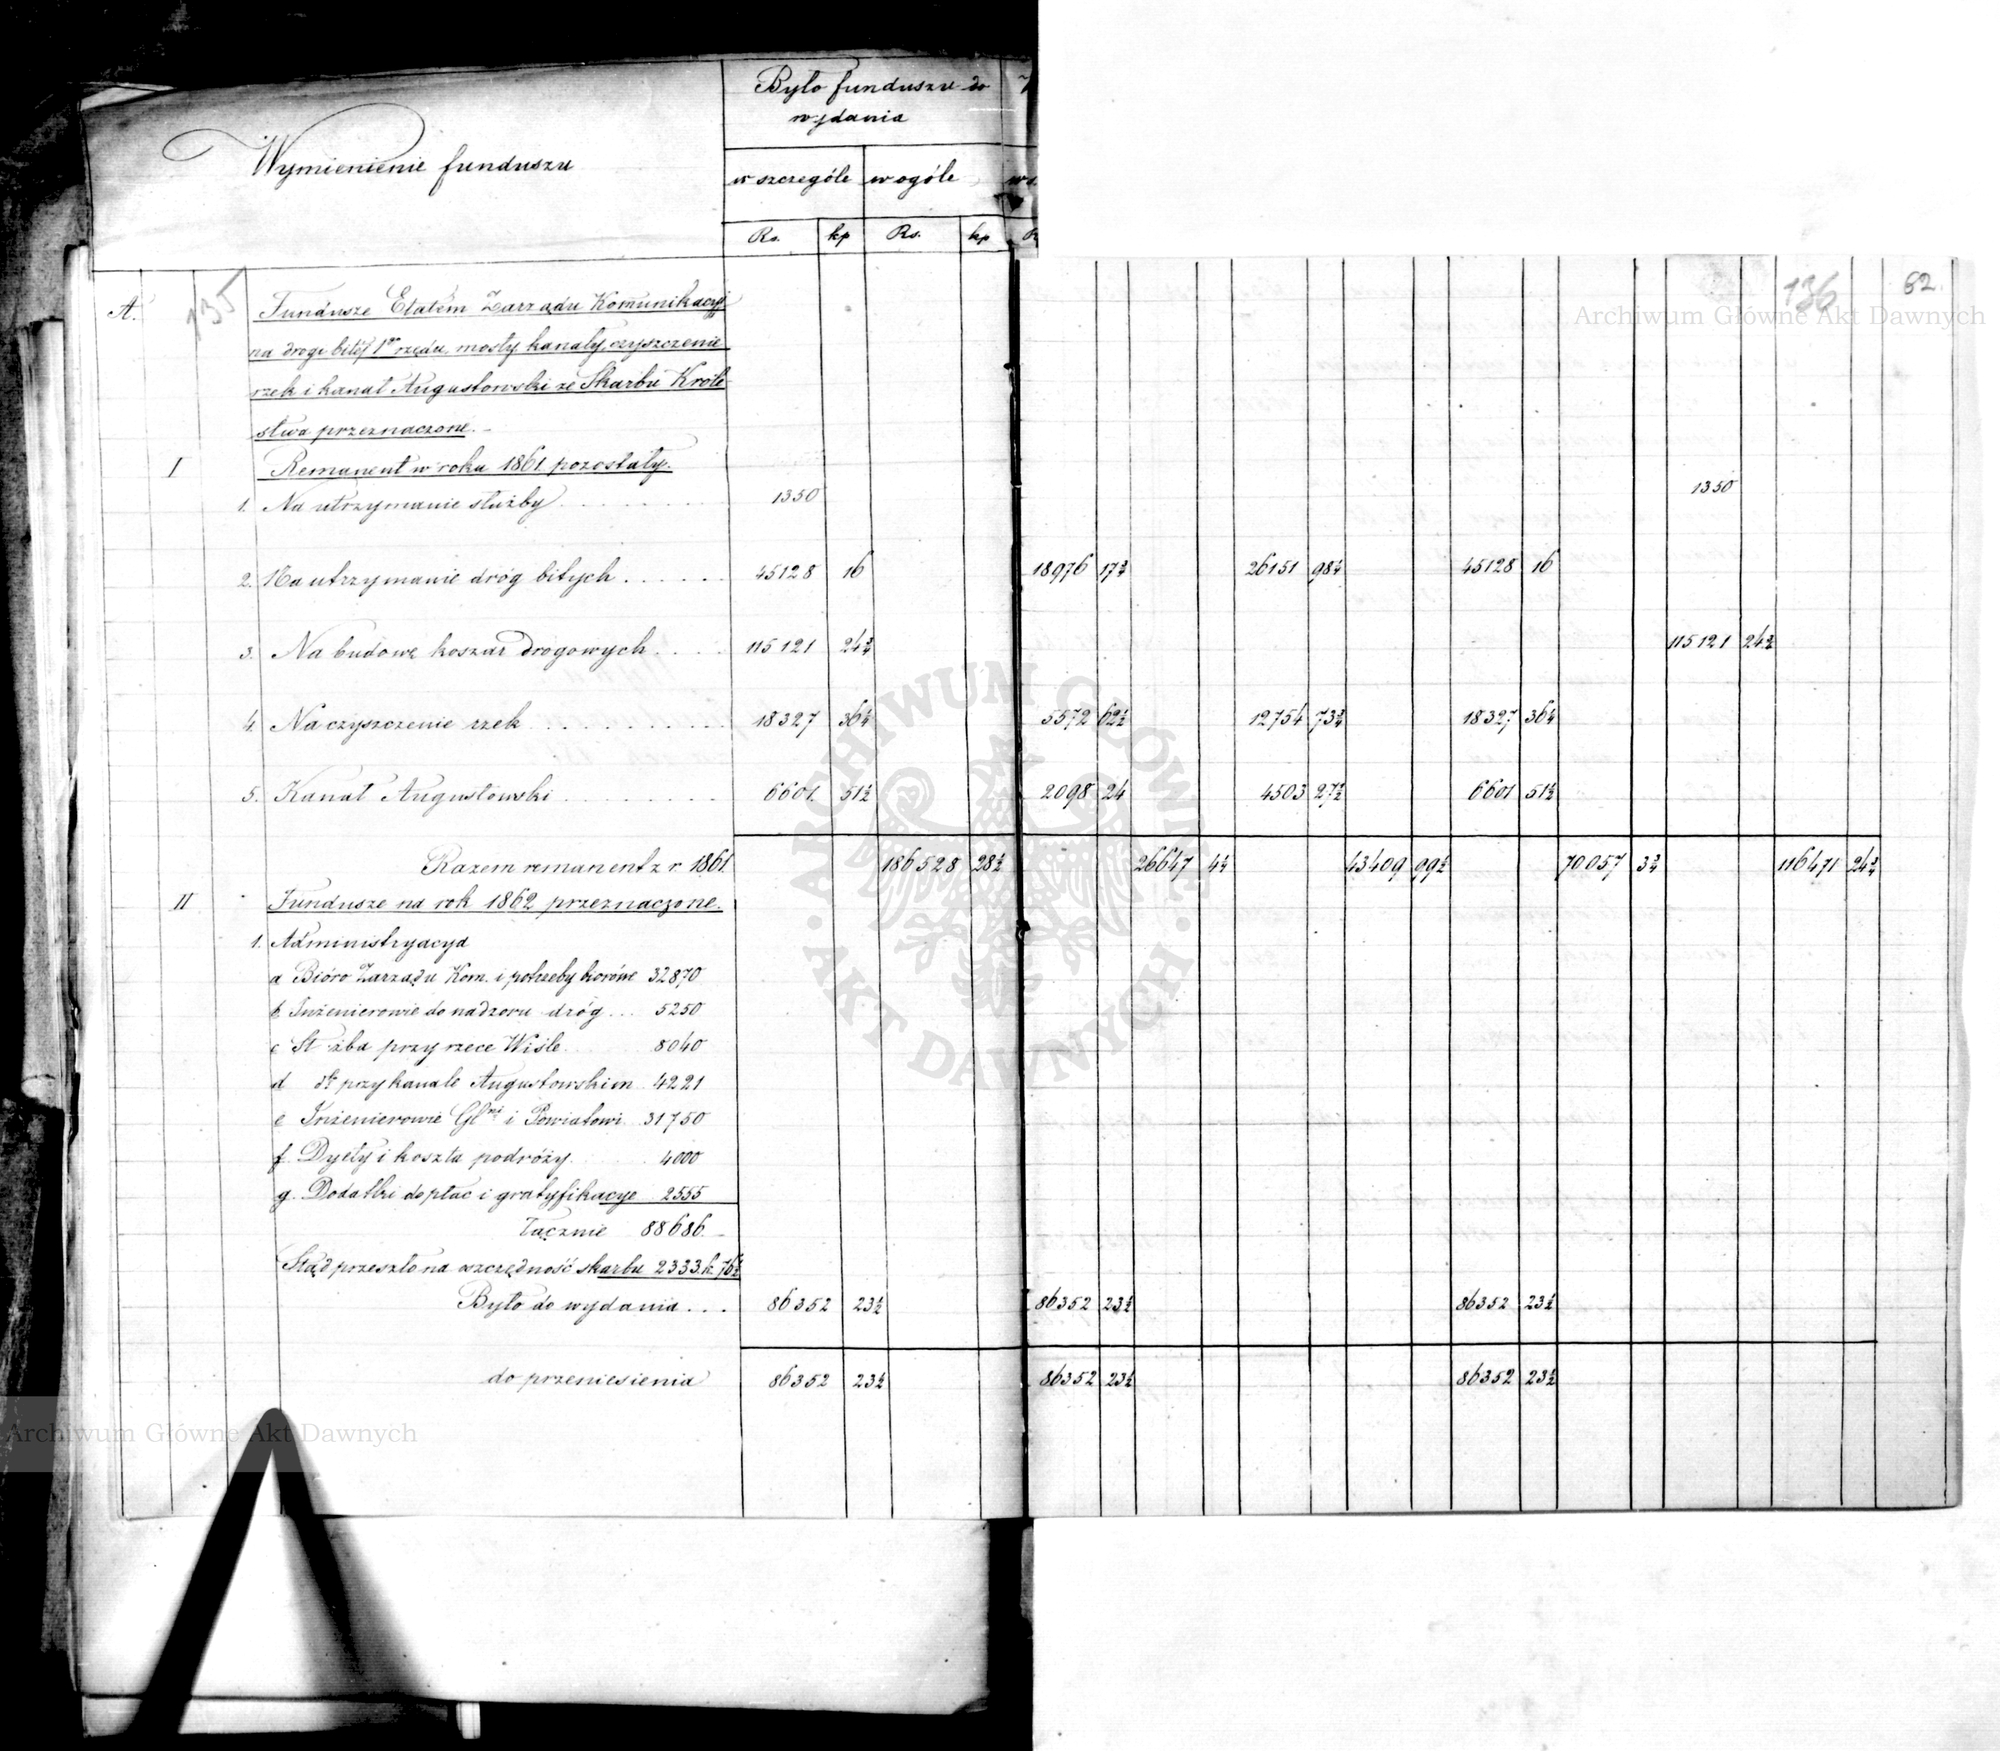 Było funduszu do
wydania
Wymienienie funduszu
w szczególe w ogóle
Rs. kp Rs. kp
135 136 62.
Archiwum Główne Akt Dawnych
A. Fundusze Etatem Zarządu Komunikacyj
na drogi bitej 1go rzędu, mosty, kanały, czyszczenie
rzek i kanał Augustowski ze Skarbu Króle
stwa przeznaczone.
I Remanent w roku 1861 pozostały.
1. Na utrzymanie służby 1350 1350
2. Na utrzymanie dróg bitych 45128 16 18976 17¾ 26151 98¼ 45128 16
3. Na budowę koszar drogowych 115121 24¾ 115121 24¾
4. Na czyszczenie rzek 18327 36¼ 5572 62½ 12754 73¾ 18327 36¼
5. Kanał Augustowski 6601 51½ 2098 24 4503 27½ 6601 51½
Razem remanent z r. 1861. 186528 28½ 26647 4¼ 43409 99½ 70057 3¾ 116471 24¾
II Fundusze na rok 1862 przeznaczone.
1. Administracyja
a Bióro Zarządu Kom. i potrzeby biórowe 32870
b Inżenierowie do nadzoru dróg 5250
c Służba przy rzece Wiśle 8040
d dto przy kanale Augustowskim 4221
e Inżenierowie Glni i Powiatowi 31750
f. Dyety i koszta podróży 4000
g. Dodatki do płac i gratyfikacye 2555
Łącznie 88686
Stąd przeszło na oszczędność skarbu 2333. k. 76½
Było do wydania 86352 23½ 86352 23½ 86352 23½
do przeniesienia 86352 23½ 86352 23½ 86352 23½
ARCHIWUM GŁÓWNE · AKT DAWNYCH ·
Archiwum Główne Akt Dawnych